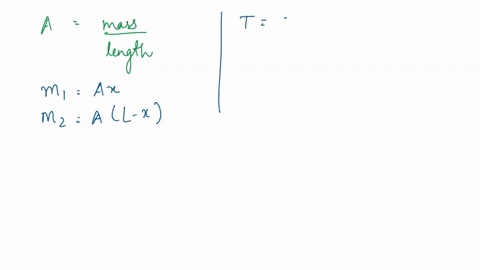 A = mass / length
m₁ = Ax
m₂ = A (L-x)
T =